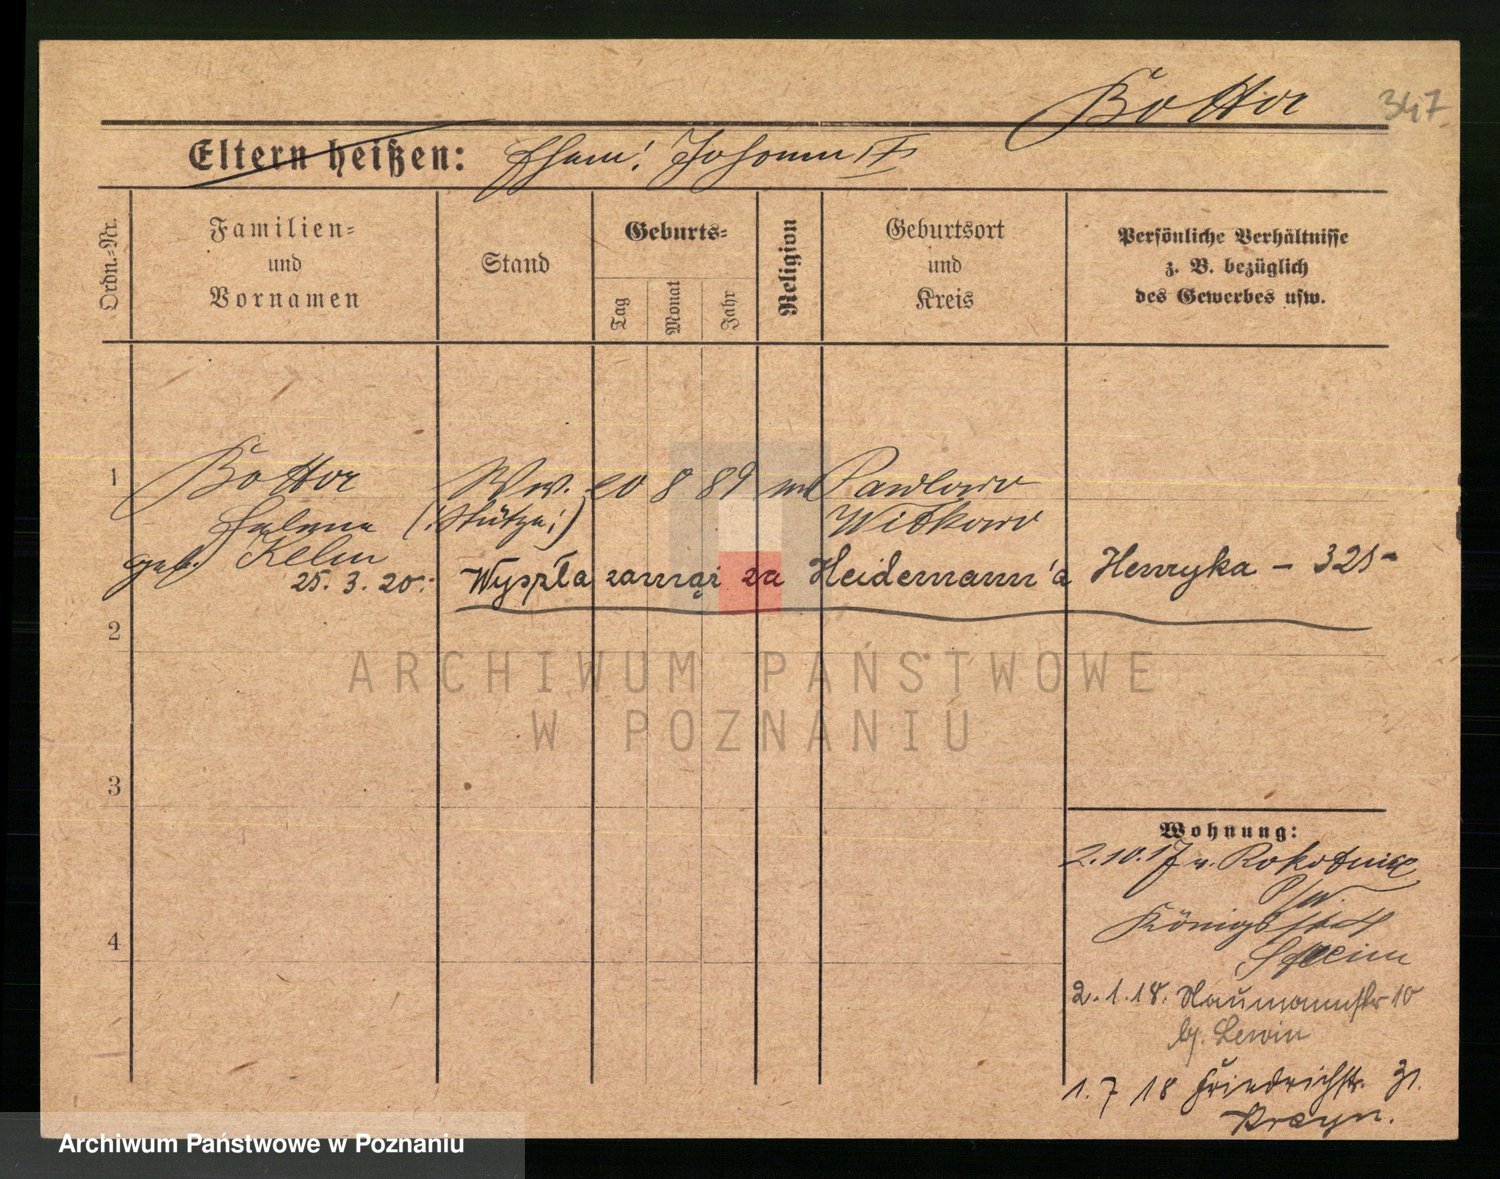 Bottor 347.
Eltern heißen: Ehem: Johann F
Ordn.-Nr.
Familien-
und
Vornamen
Stand
Geburts-
Tag
Monat
Jahr
Religion
Geburtsort
und
Kreis
Persönliche Verhältnisse
z. B. bezüglich
des Gewerbes usw.
1 Bottor Ww. 20 8 89 Pawlowo
Helene (:Stütze:) Witkowo
geb. Kelm
25. 3. 20. Wyszła zamąż za Heidemann'a Henryka - 321-
2
3
4
Wohnung:
2.10.17 v. Rokotnice
P/W.
Königs
2.1.18. Naumannstr 10
b/. Lewin
1.7 18 Friedrichstr. 31.
ARCHIWUM PAŃSTWOWE
W POZNANIU
Archiwum Państwowe w Poznaniu